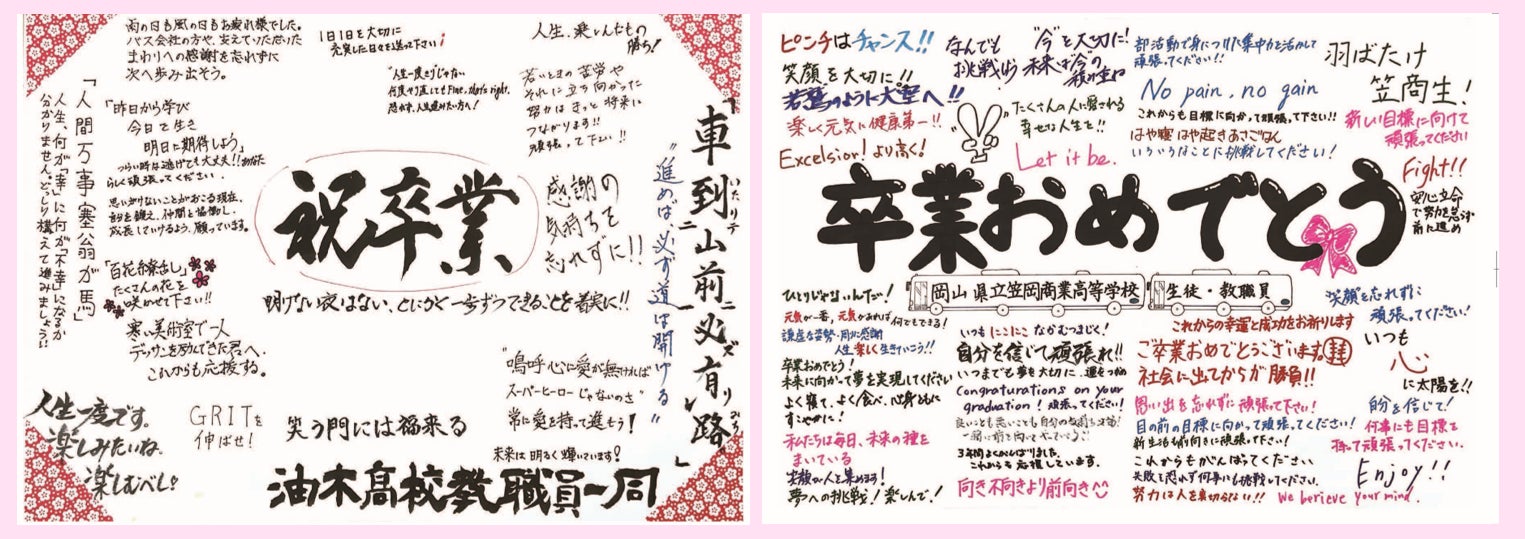 雨の日も風の日もお疲れ様でした。
バス会社の方や、支えていただいた
まわりへの感謝を忘れずに
次へ歩み出そう。
1日1日を大切に
充実した日々を送って下さい!
人生、楽しんだもの
勝ち!
"人生一度きりじゃない
何度やり直してもFine, that's right.
恐れず、人生進みたい方へ!
若いときの苦労や
それに立ち向かった
努力はきっと将来に
つながります!!
頑張って下さい!!
「車到山前必有路」
いたりテ
ニ
ズ
リ
みち
"進めば必ず道は開ける"
「人間万事塞翁が馬」
人生、何が「幸」に何が「不幸」になるか
分かりません。どっしり構えて進みましょう!!
「昨日から学び
今日を生き
明日に期待しよう」
つらい時は逃げても大丈夫!!あなた
らしく頑張ってください。
思いがけないことがおこる現在、
自分を鍛え、仲間と協働し、
成長していけるよう、願っています。
祝卒業
感謝の
気持ちを
忘れずに!!
「百花繚乱」
たくさんの花を
咲かせて下さい!!
明けない夜はない、とにかく一歩ずつできることを着実に!!
寒い美術室で一人
デッサンを励んできた君へ、
これからも応援する。
"嗚呼 心に愛が無ければ
スーパーヒーローじゃないのさ"
常に愛を持って進もう!
人生一度です。
楽しみたいね。
楽しむべし!
GRITを
伸ばせ!
笑う門には福来る
未来は明るく輝いています!
油木高校教職員一同
ピンチはチャンス!!
笑顔を大切に!!
若鷲のように大空へ!!
楽しく元気に健康第一!!
Excelsior! より高く!
なんでも
挑戦
"今"を大切に!
未来は今の
積み重ね
たくさんの人に愛される
幸せな人生を!!
Let it be.
部活動で身につけた集中力を活かして
頑張ってください!!
No pain, no gain
これからも目標に向かって頑張って下さい!!
はや寝 はや起き あさごはん
いろいろなことに挑戦してください!
羽ばたけ
笠商生!
新しい目標に向けて
頑張ってください
Fight!!
安心立命
で努力を怠らず
前に進め
卒業おめでとう
岡山県立笠岡商業高等学校
生徒・教職員
ひとりじゃないんだ!
元気が一番、元気があれば何でもできる!
謙虚な姿勢・周りに感謝
人生楽しく生きていこう!!
卒業おめでとう!
未来に向かって夢を実現してください
よく寝て、よく食べ、心身ともに
すこやかに!
私たちは毎日、未来の種を
まいている
笑顔が人を集める!
夢への挑戦!楽しんで!
いつもにこにこ なかむつまじく!
自分を信じて頑張れ!!
いつまでも夢を大切に、運をつかめ
Congraturations on your
graduation! 頑張ってください!
良いことも悪いことも自分の気持ち次第!
一緒に前を向いてやっていこう!
3年間よくがんばりました。
これからも応援しています。
向き不向きより前向き
これからの幸運と成功をお祈りします
ご卒業おめでとうございます。
社会に出てからが勝負!!
思い出を忘れずに頑張って下さい!
目の前の目標に向かって頑張ってください!
新生活も前向きに頑張って下さい!
これからもがんばってください
失敗を恐れず何事にも挑戦してください。
努力は人を裏切らない!!
We berieve your mind.
笑顔を忘れずに
頑張ってください!
いつも
心
に太陽を!!
自分を信じて!
何事にも目標を
持って頑張ってください。
Enjoy!!